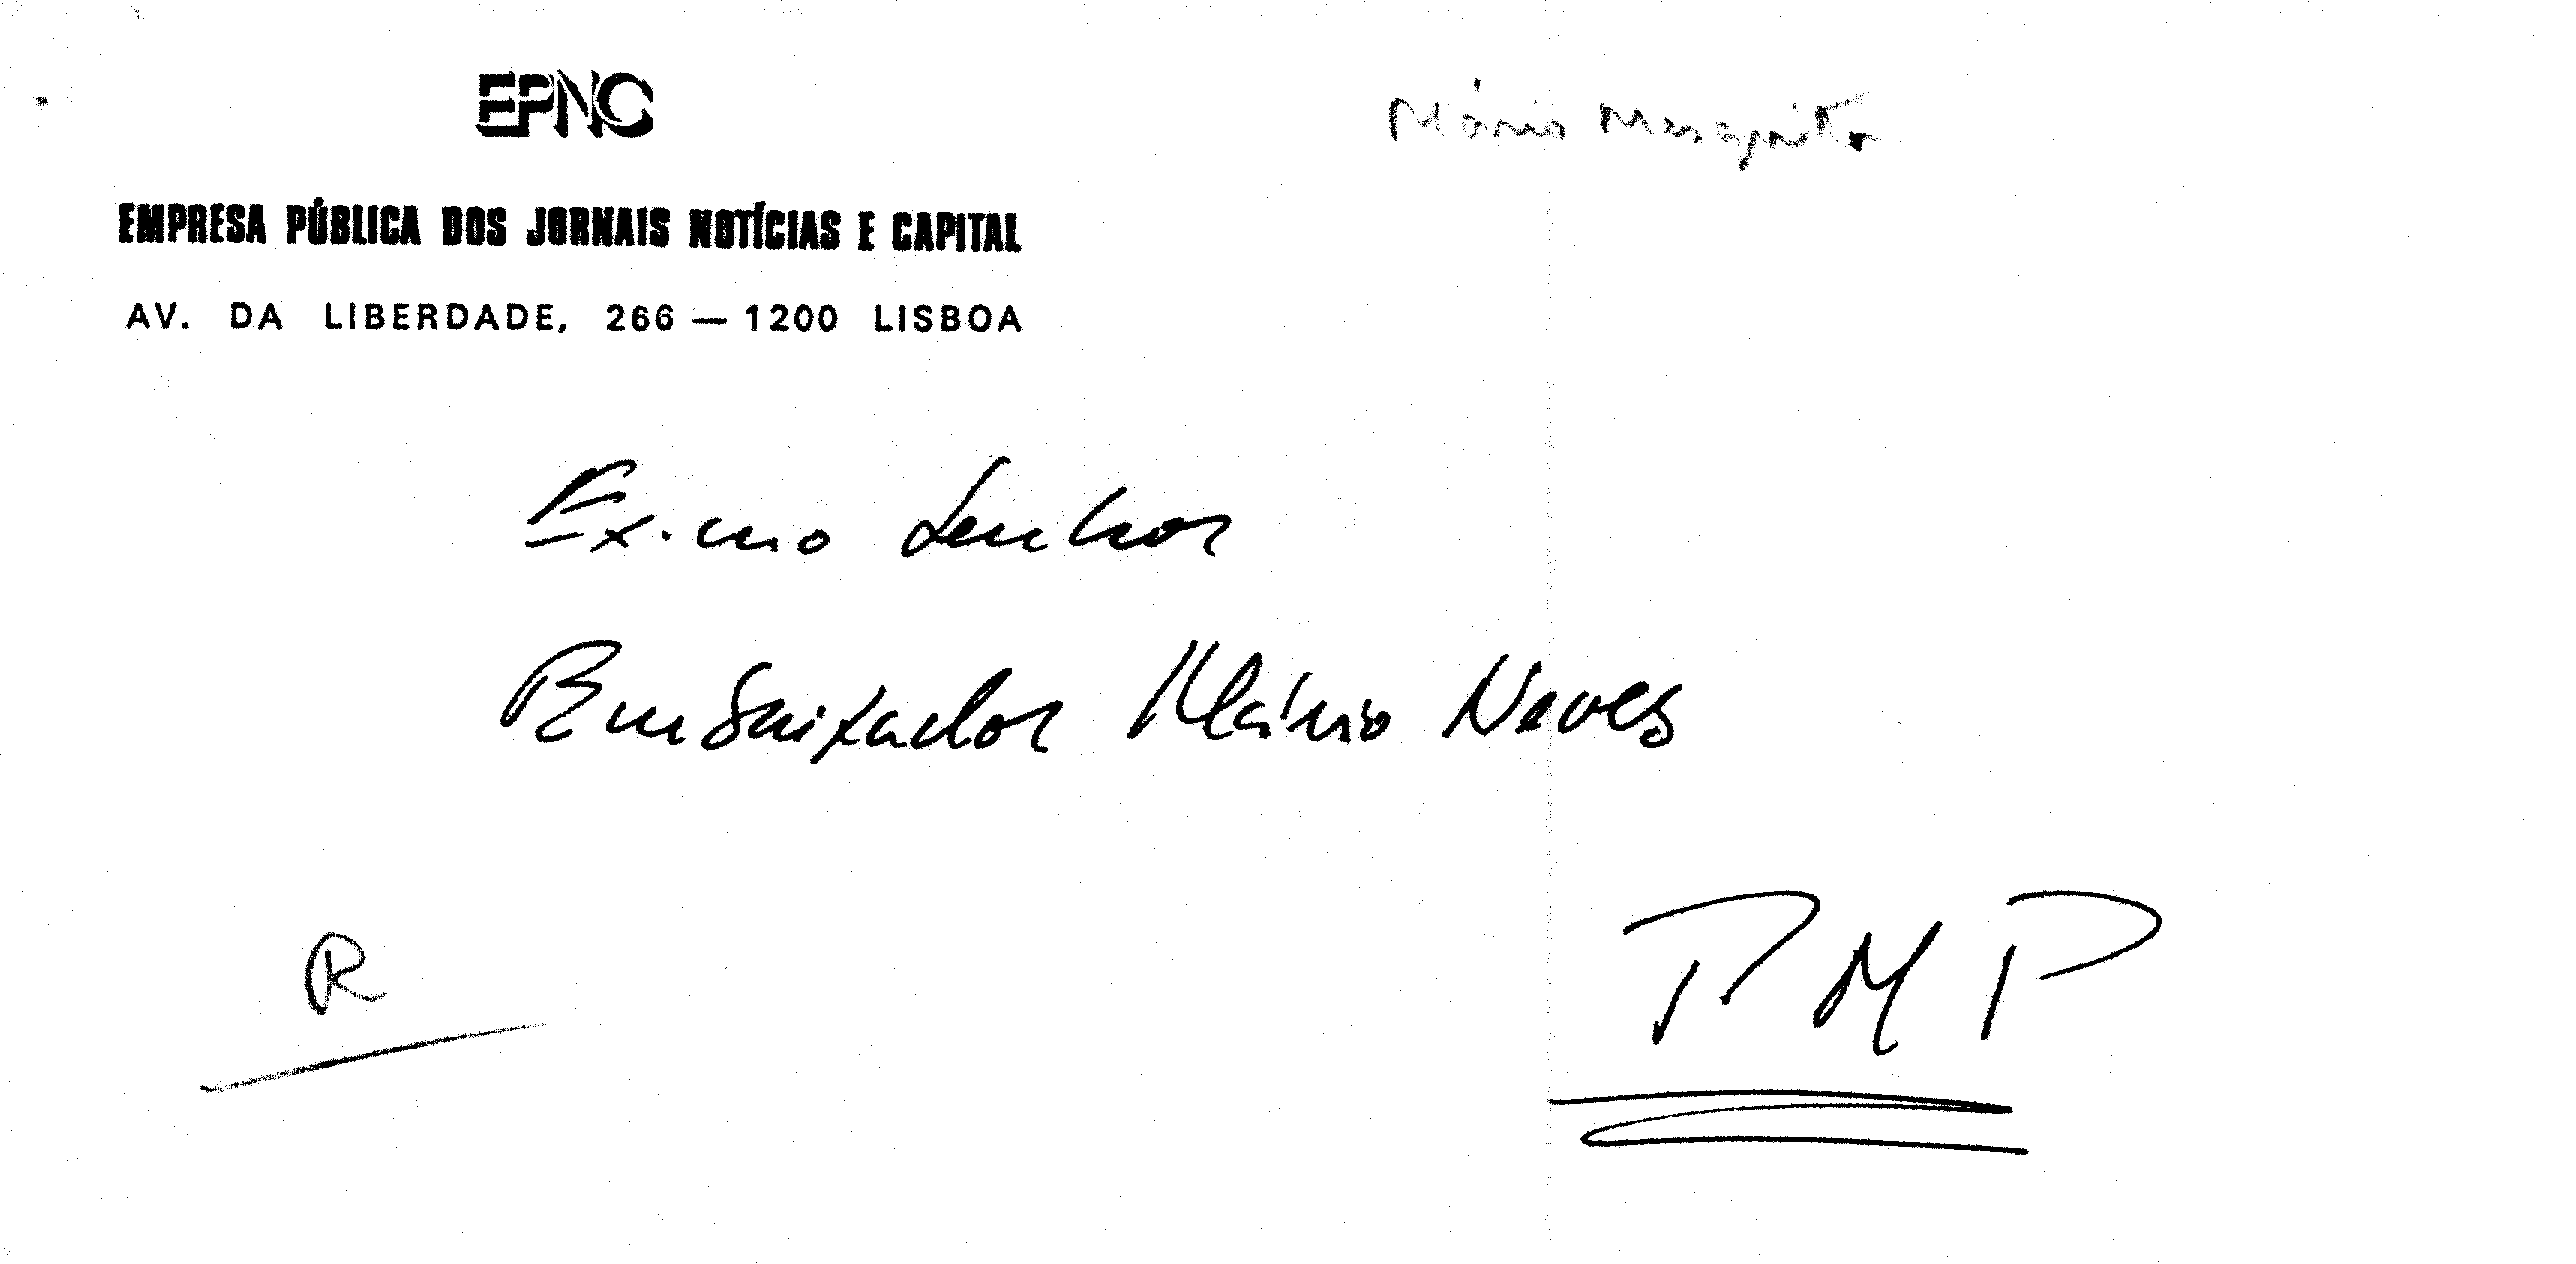 EPNC
Mário Mesquita
EMPRESA PÚBLICA DOS JORNAIS NOTÍCIAS E CAPITAL
AV. DA LIBERDADE, 266 — 1200 LISBOA
Ex.mo Senhor
Embaixador Mário Neves
R
PMP